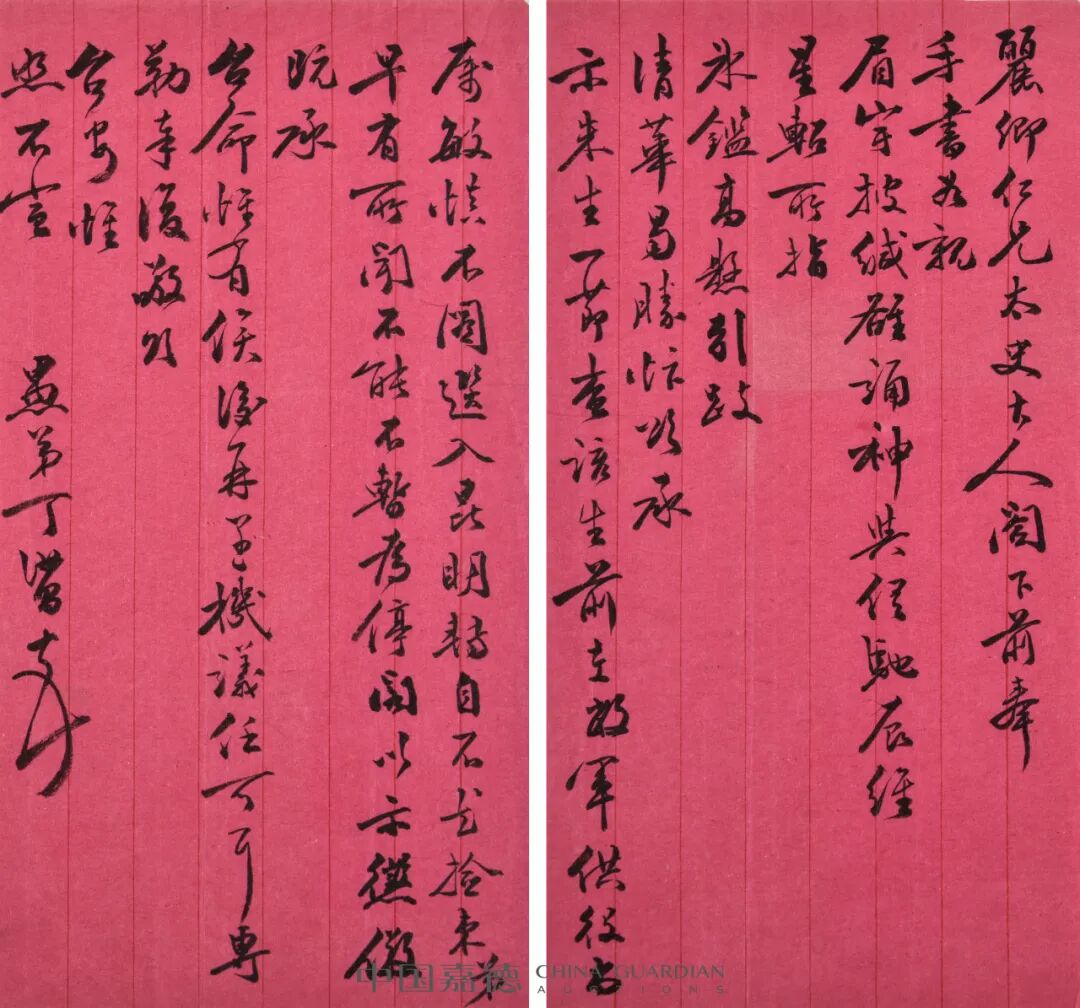 麗卿仁兄太史大人閣下前奉
手書如親
眉宇披緘雒誦神與俱馳辰維
星軺所指
冰鑑高懸引跂
清華曷勝忭頌承
示朱生一節查該生前在敝軍供役尚
属敏慎不圖選入昆明轉自不檢束弟
早有所聞不能不暫為停以示懲儆
既承
台命惟有俟後再機議任可耳專
勒奉復敬頌
台安惟
照不宣
愚弟丁
中国嘉德 CHINA GUARDIAN
AUCTIONS